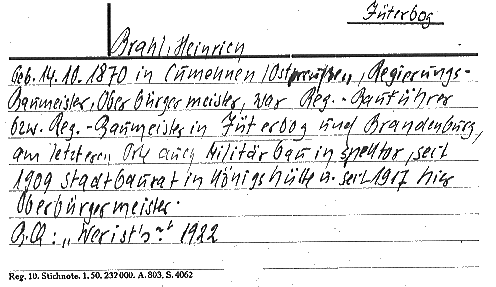 Jüterbog
Brahl, Heinrich
geb. 14.10.1870 in Cumehnen /Ostpreußen, Regierungs-
Baumeister, Oberbürgermeister, war Reg.-Bauführer
bzw. Reg.-Baumeister in Jüterbog und Brandenburg,
am letzteren Orte auch Militärbauinspektor, seit
1909 Stadtbaurat in Königshütte u. seit 1917 hier
Oberbürgermeister.
"Wer ist's?" 1922
Reg. 10. Stichnote. 1. 50. 232000. A. 803. S. 4062